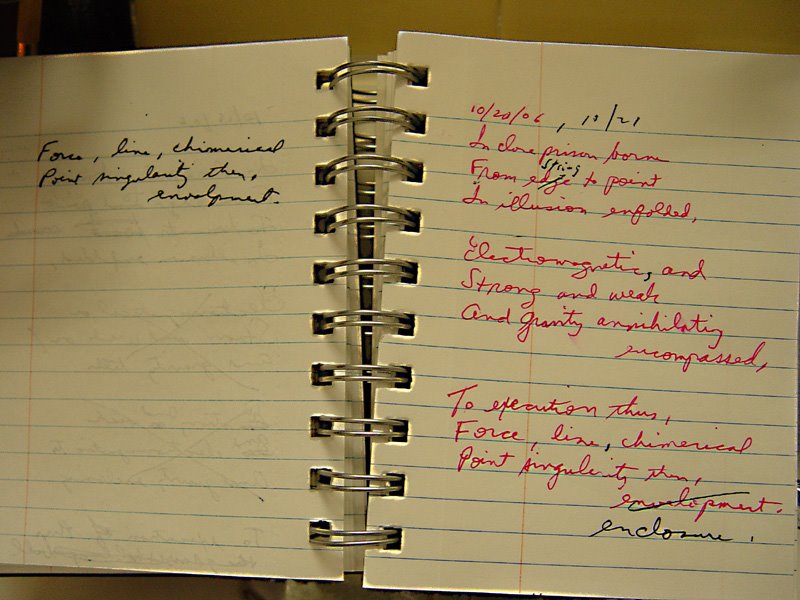 Force, line, chimerical
Point singularity then,
envelopment.
10/20/06, 10/21
In close prison borne
string
From edge to point
In illusion enfolded,
Electromagnetic, and
Strong and weak
And gravity annihilating
encompassed,
To execution thus,
Force, line, chimerical
Point singularity then,
envelopment.
enclosure.